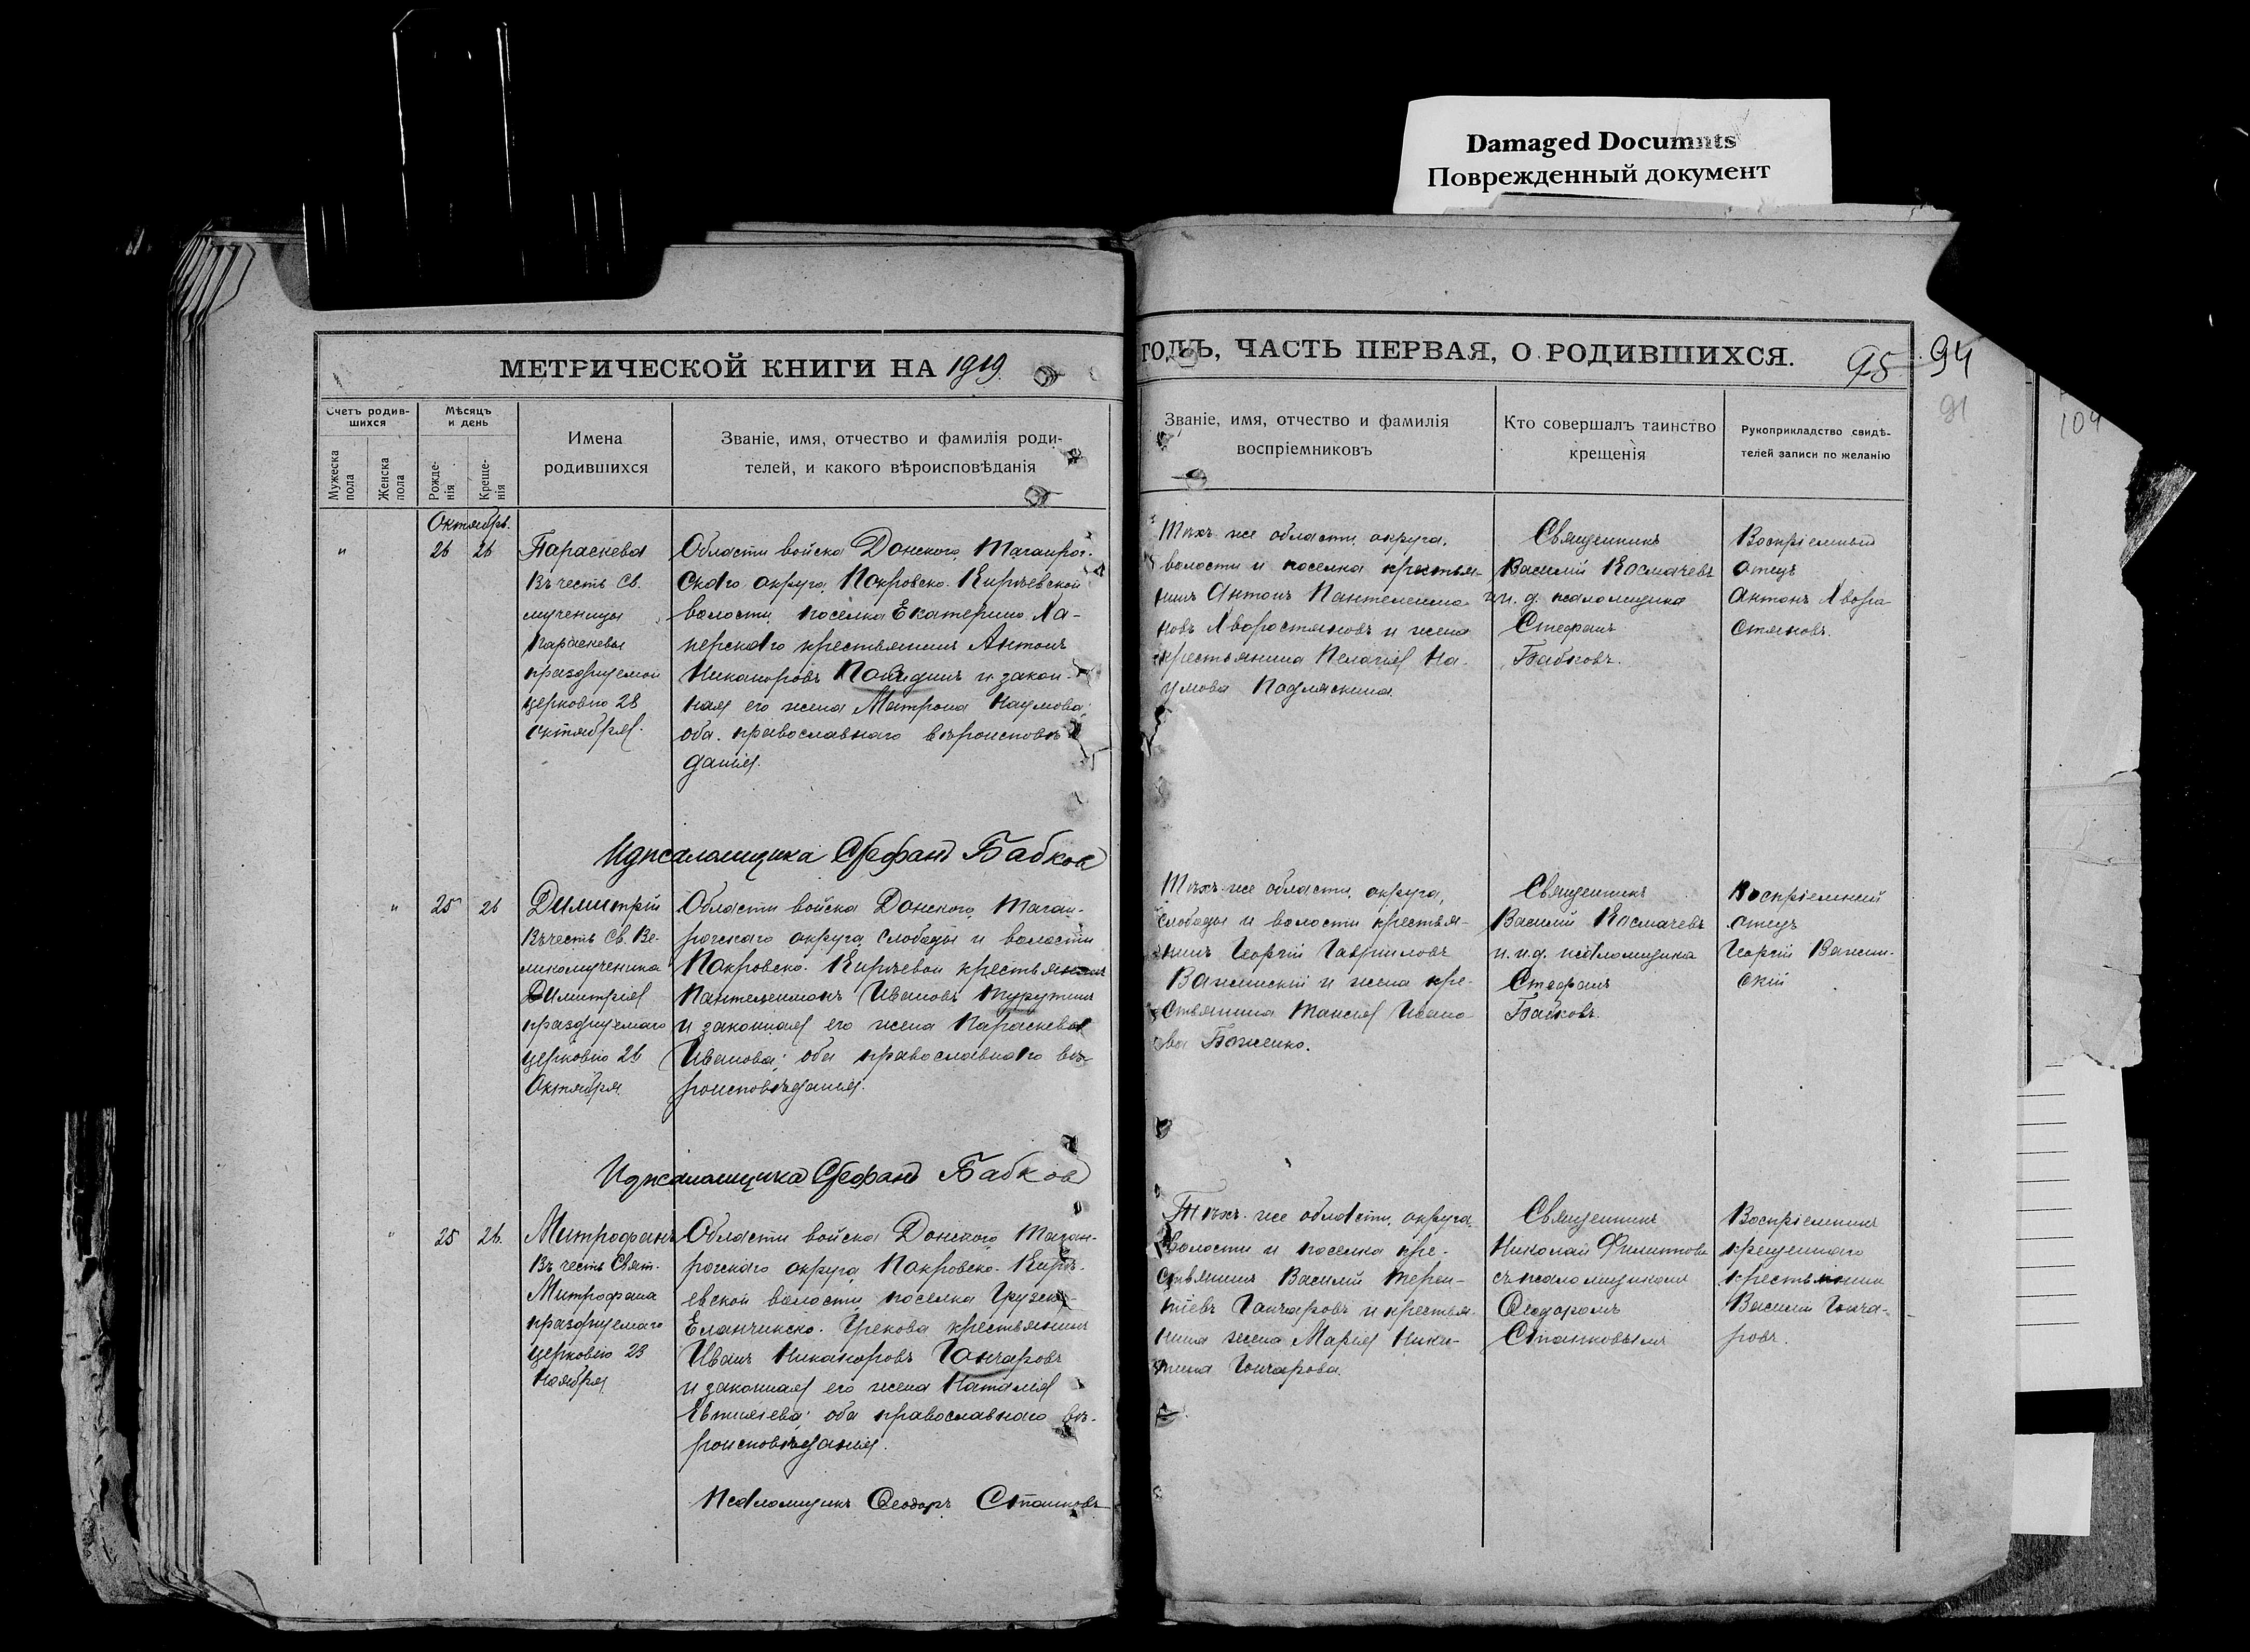 Damaged Documnts
Поврежденный документ
МЕТРИЧЕСКОЙ КНИГИ НА 1919
ГОДЪ, ЧАСТЬ ПЕРВАЯ, О РОДИВШИХСЯ.
95 94
91
104
Счетъ родив-
шихся
Мужеска
пола
Женска
пола
Мѣсяцъ
и день
Рожде-
нія
Креще-
нія
Имена
родившихся
Званіе, имя, отчество и фамилія роди-
телей, и какого вѣроисповѣданія
Званіе, имя, отчество и фамилія
воспріемниковъ
Кто совершалъ таинство
крещенія
Рукоприкладство свидѣ-
телей записи по желанію
Октябрь.
" 26 26
Параскева
Въ честь Св.
мученицы
Параскевы
празднуемой
церковію 28
октября.
Области войска Донского, Таганрог-
скаго округа, Покровско-Кирѣевской
волости, поселка Екатерино-Ха-
перскаго крестьянинъ Антонъ
Никаноровъ и закон-
ная его жена Матрона Наумова;
оба православнаго вѣроисповѣ-
данія.
Тѣхъ-же области, округа,
волости и поселка крестья-
нинъ Антонъ Пантелеимо-
новъ Хворостяновъ и жена
крестьянина Пелагія На-
умова Подляскина.
Священникъ
Василій Космачевъ
и и. д. псаломщика
Стефанъ
Бабковъ.
Воспріемный
отецъ
Антонъ Хворо
стяновъ.
И д псаломщика Стефанъ Бабков
" 25 26
Димитрій
Въ честь Св. Ве-
ликомученика
Димитрія
празднуемаго
церковію 26
Октября.
Области войска Донского, Таган-
рогскаго округа, слободы и волости
Покровско-Кирѣевой крестьянинъ
Пантелеимонъ Ивановъ Турутинъ
и законная его жена Параскева
Иванова; оба православнаго вѣ-
роисповѣданія.
Тѣхъ-же области, округа,
слободы и волости крестья-
нинъ Георгій Гавриловъ
Важинскій и жена кре-
стьянина Таисія Ивано-
ва Боженко.
Священникъ
Василій Космачевъ
и и. д. псаломщика
Стефанъ
Бабковъ.
Воспріемный
отецъ
Георгій Важин-
скій
И д псаломщика Стефанъ Бабков
" 25 26.
Митрофанъ
Въ честь Свят.
Митрофана
празднуемаго
церковію 23
Ноября
Области войска Донского, Таган-
рогскаго округа, Покровско-Кирѣ-
евской волости, поселка Грузско-
Еланчинско-Грекова крестьянинъ
Иванъ Никаноровъ Гончаровъ
и законная его жена Наталія
оба православнаго вѣ-
роисповѣданія.
Тѣхъ-же области, округа,
волости и поселка кре-
стьянинъ Василій Терен-
тіевъ Гончаровъ и крестья-
нина жена Марія Ники-
тина Гончарова.
Священникъ
Николай Филипповъ
съ псаломщикомъ
Ѳеодоромъ
Сташковымъ
Воспріемникъ
крещеннаго
крестьянинъ
Василій Гонча-
ровъ.
Псаломщикъ Ѳеодоръ Сташковъ